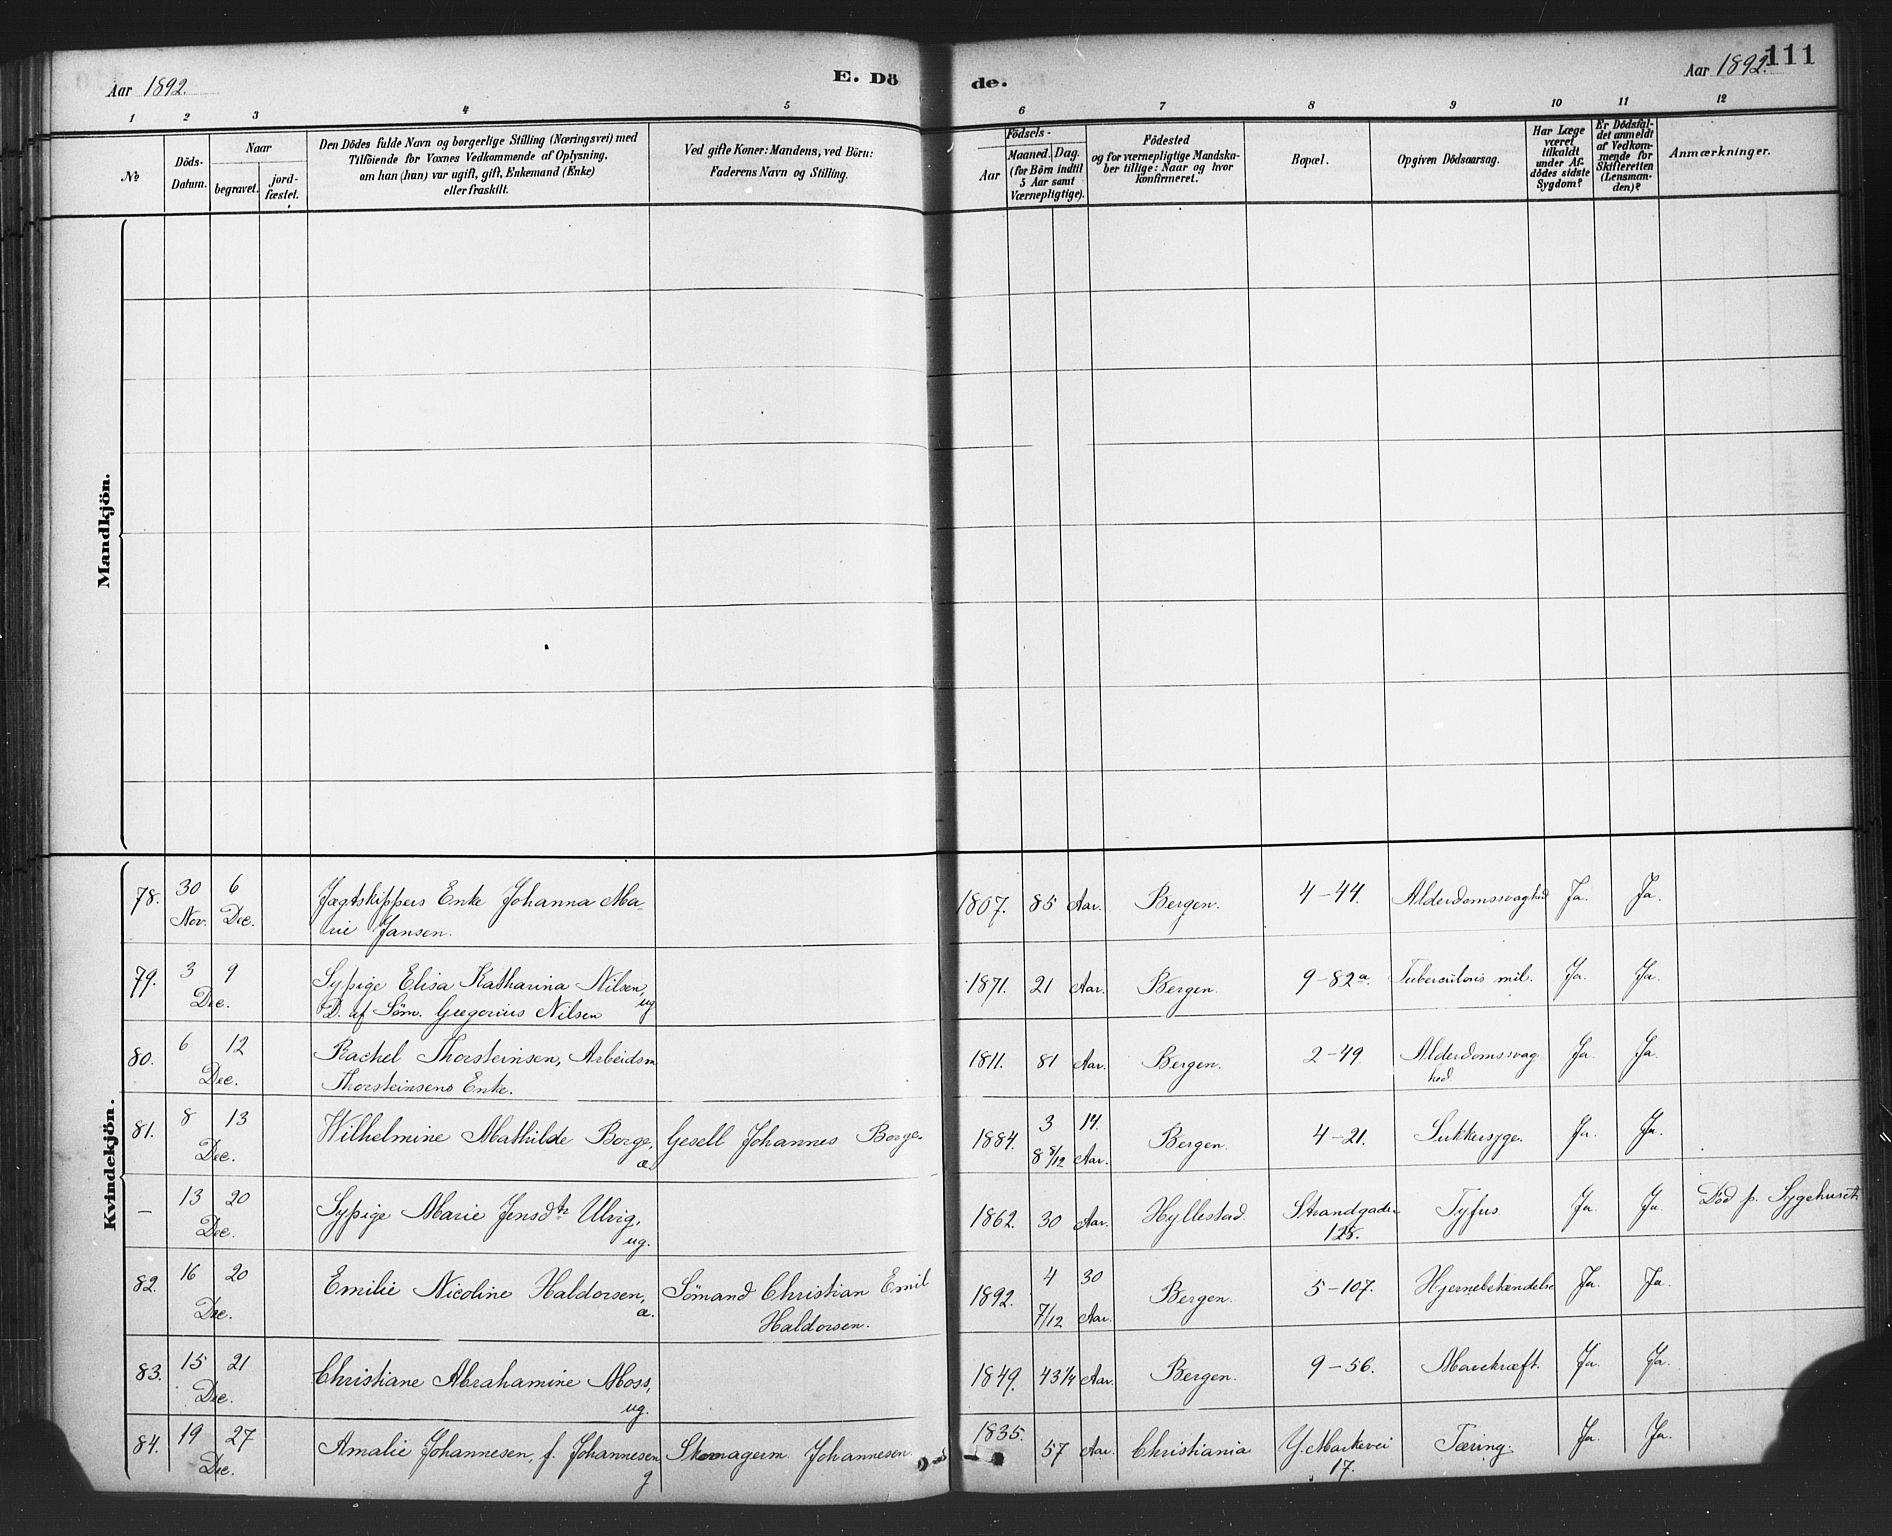 Aar 1892.
E. Dö
de.
Aar 1892.
111
1 2 3 4 5 6 7 8 9 10 11 12
No
Döds-
Datum.
Naar
begravet.
jord-
fæstet.
Den Dödes fulde Navn og borgerlige Stilling (Næringsvei) med
Tilföiende for Voxnes Vedkommende af Oplysning,
om han (hun) var ugift, gift, Enkemand (Enke)
eller fraskilt.
Ved gifte Koner: Mandens, ved Börn:
Faderens Navn og Stilling.
Födsels-
Aar
Maaned. Dag.
(for Börn indtil
5 Aar samt
Værnepligtige).
Födested
og for værnepligtige Mandska-
ber tillige: Naar og hvor
konfirmeret.
Bopæl.
Opgiven Dödsaarsag.
Har Læge
været
tilkaldt
under Af-
dödes sidste
Sygdom?
Er Dödsfal-
det anmeldt
af Vedkom-
mende for
Skifteretten
(Lensman-
den)?
Anmærkninger.
Mandkjön.
Kvindekjön.
78. 30 Nov. 6 Dec. Jægtskippers Enke Johanna Ma-
rie Jansen.
1807. 85 Aar. Bergen. 4-44. Alderdomssvaghed Ja. Ja.
79. 3 9 Dec. Sypige Elisa Katharina Nilsen, ug
D. af Söm. Gregorius Nilsen
1871. 21 Aar. Bergen. 9-82a. Tuberculosis mil. Ja. Ja.
80. 6 12 Dec. Rachel Thorsteinsen, Arbeidsm
Thorsteinsens Enke.
1811. 81 Aar. Bergen. 2-49. Alderdomssvag
hed. Ja. Ja.
81. 8 13 Dec. Wilhelmine Mathilde Borge, æ. Gesell Johannes Borge.
1884. 3 14. 8 8/12 Aar. Bergen. 4-21. Sukkersyge. Ja. Ja.
— 13 20 Dec. Sypige Marie Jensdtr Ulvig, ug.
1862. 30 Aar. Hyllestad. Strandgaden
128. Tyfus. Ja. Ja. Död p. Sygehuset
82. 16 20 Dec. Emilie Nicoline Haldorsen, æ. Sömand Christian Emil
Haldorsen.
1892. 4 30 7/12 Aar. Bergen. 5-107. Hjernebetændelse Ja. Ja.
83. 15 21 Dec. Christiane Abrahamine Moss, ug.
1849. 43 1/4 Aar. Bergen. 9-56. Mavekræft. Ja. Ja.
84. 19 27 Dec. Amalie Johannesen, f. Johannesen g Skomagerm. Johannesen
1835. 57 Aar. Christiania Y. Markevei
17. Tæring. Ja. Ja.